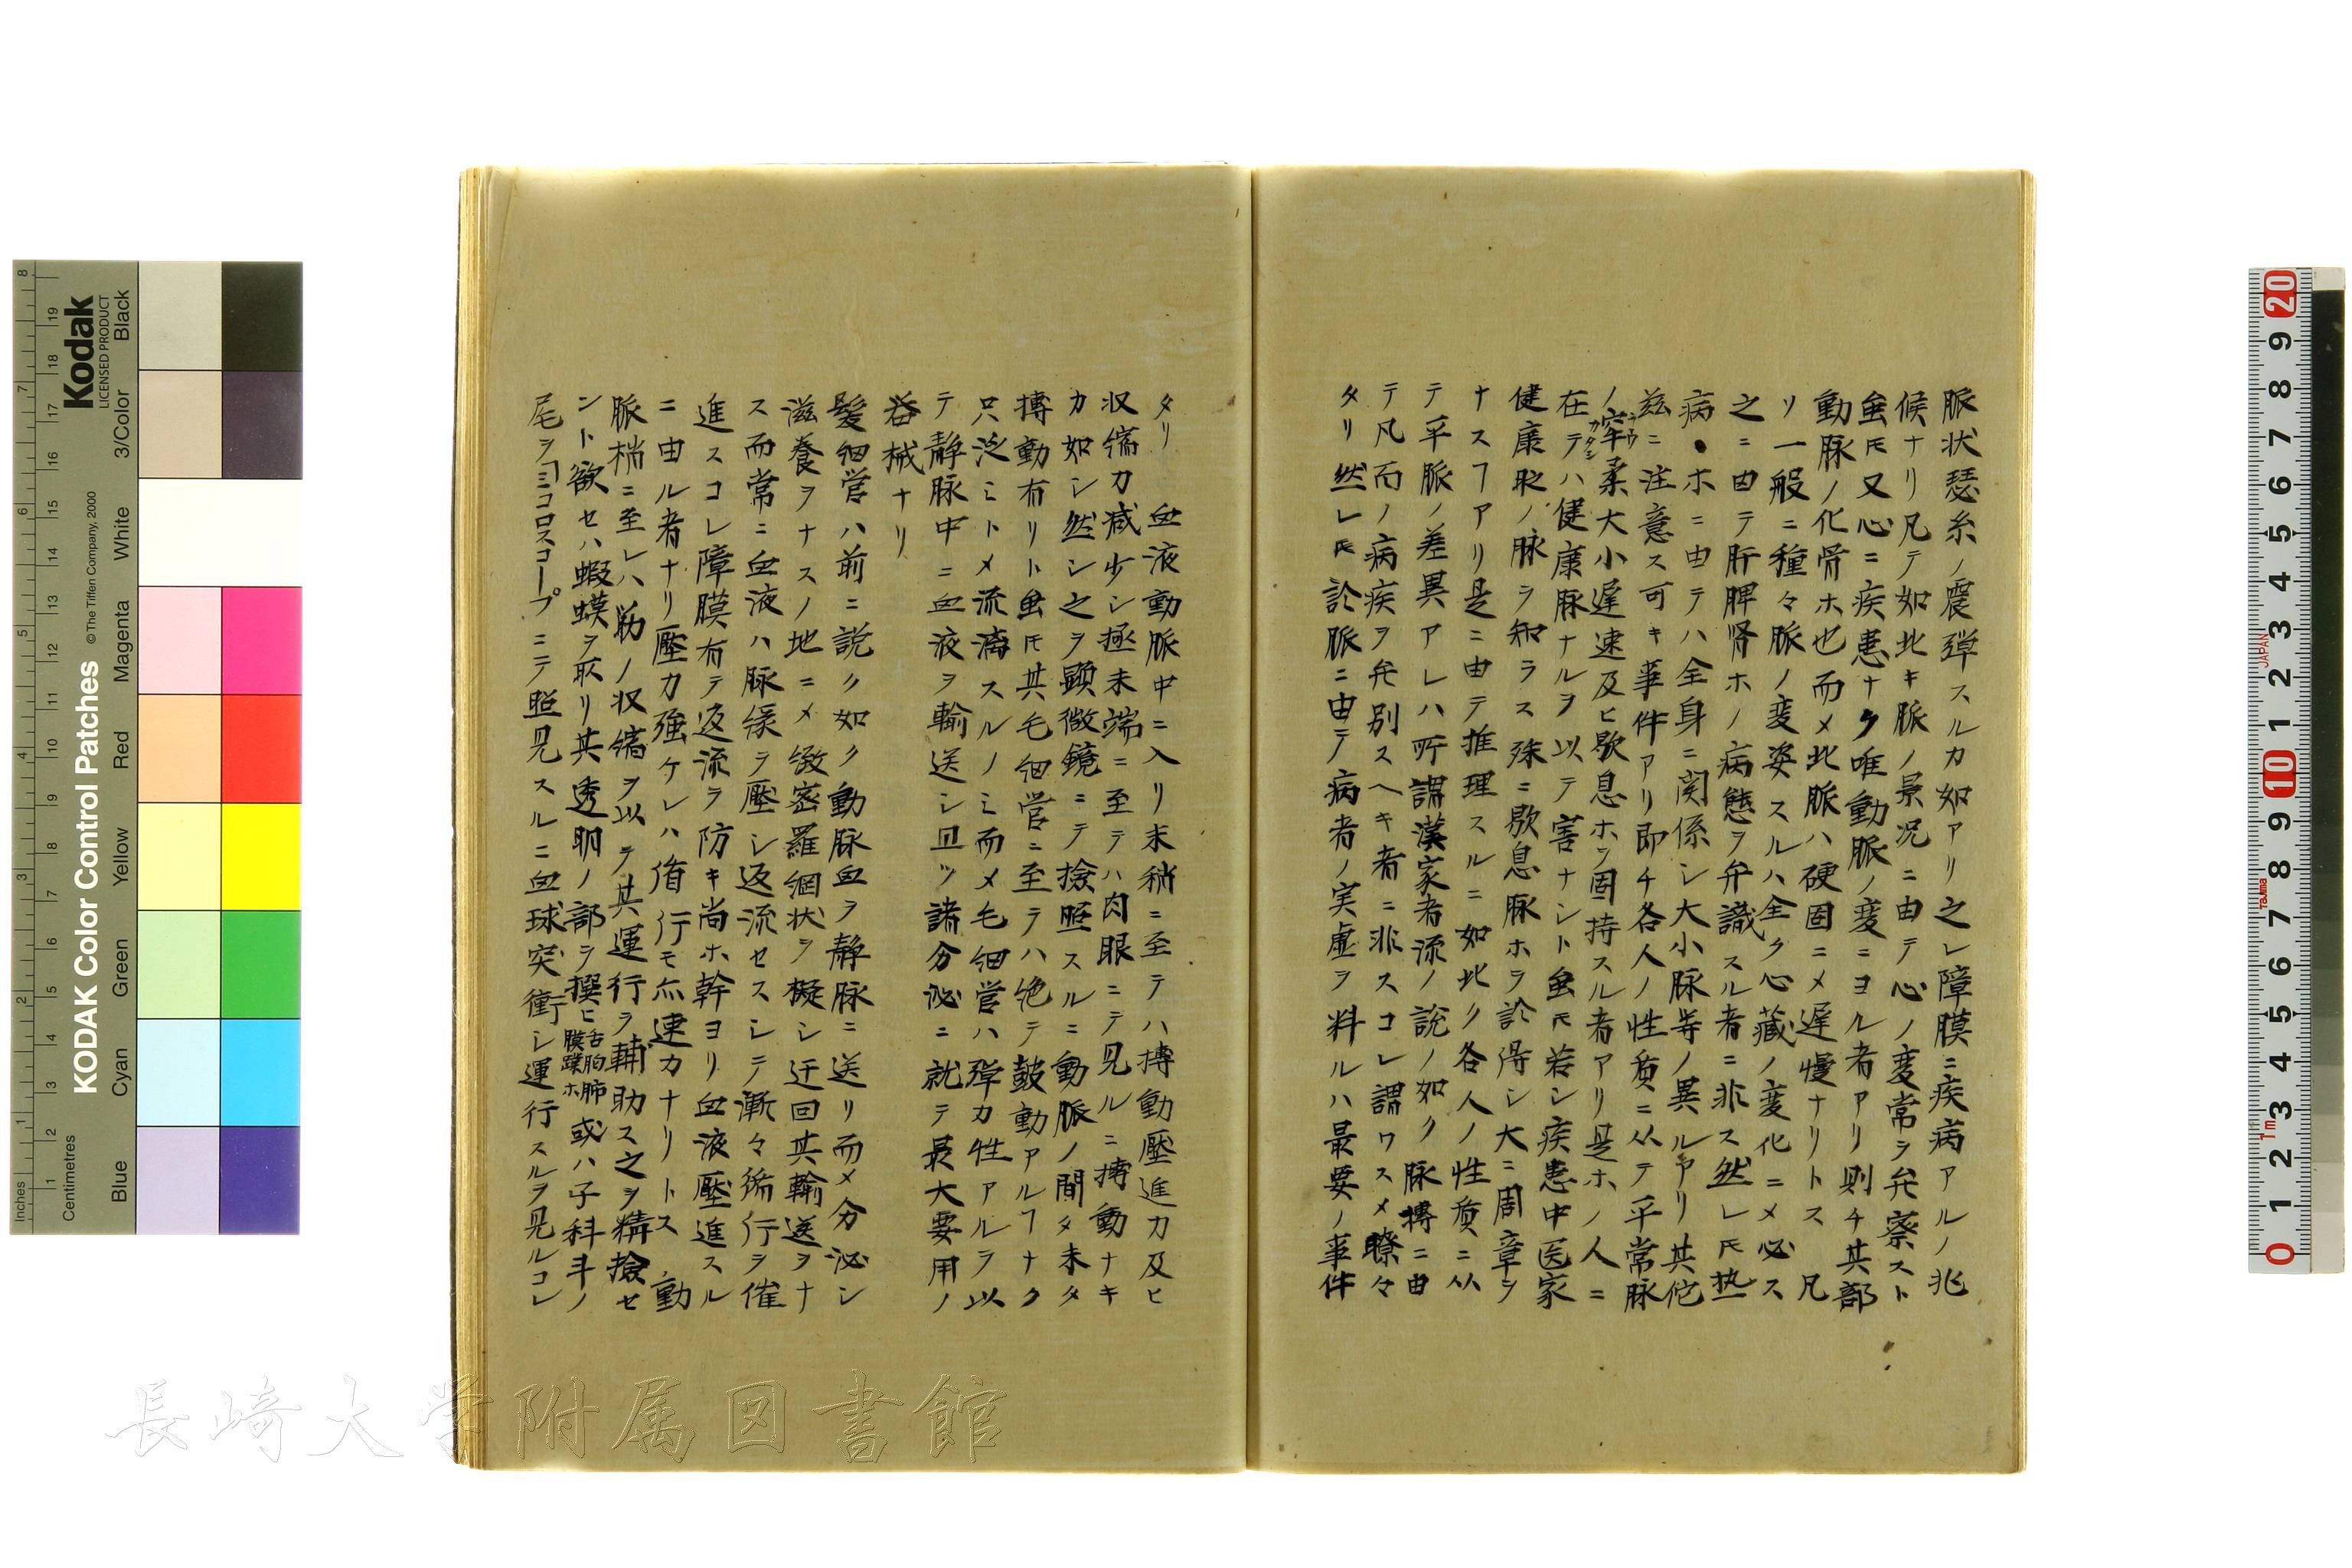 脈状瑟糸ノ震弾スルカ如アリ之レ障膜ニ疾病アルノ兆
候ナリ凡テ如此キ脈ノ景況ニ由テ心ノ変常ヲ弁蔡スト
虽𪜈又心ニ疾患ナク唯動脈ノ変ニヨル者アリ則チ其部
動脈ノ化骨ホ也而メ此脈ハ硬固ニメ遅慢ナリトス凡
リ一般ニ種々脈ノ変姿スルハ全ク心蔵ノ変化ニメ必ス
之ニ由テ肝脾腎ホノ病態ヲ弁識スル者ニ非ス然レ𪜈热
病・ホニ由テハ全身ニ関係シ大小脉等ノ異ルアリ其佗
茲ニ注意ス可キ事件アリ即チ各人ノ性質ニ从テ平常脈
ノ牢柔大小遅速及ヒ歇息ホヲ固持スル者アリ是ホノ人ニ
在テハ健康脈ナルヲ以テ害ナシト虽𪜈若シ疾患中医家
健康時ノ脉ヲ知ラス殊ニ歇息脉ホヲ診得シ大ニ周章ヲ
ナスヿアリ是ニ由テ推理スルニ如此ク各人ノ性質ニ从
テ平脈ノ差異アレハ所謂漢家者流ノ説ノ如ク脉搏ニ由
テ凡而ノ病疾ヲ弁別スヘキ者ニ非スコレ謂ワスメ瞭々
タリ然レ𪜈診脈ニ由テ病者ノ実虚ヲ料ルハ最要ノ事件
タリ　血液動脈中ニ入リ末稍ニ至テハ搏動壓進力及ヒ
収縮力减少シ極末端ニ至テハ肉眼ニテ見ルニ搏動ナキ
カ如シ然シ之ヲ顕微鏡ニテ撿照スルニ動脈ノ間タ未タ
搏動有リト虽𪜈其毛細管ニ至テハ绝テ皷動アルヿナク
只泛ミトメ流満スルノミ而メ毛細管ハ弾力性アルヲ以
テ静脈中ニ血液ヲ輸送シ且ツ諸分泌ニ就テ最大要用ノ
器械ナリ
髪細管ハ前ニ説ク如ク動脉血ヲ静脉ニ送リ而メ分泌シ
滋養ヲナスノ地ニメ緻密羅網状ヲ擬シ迂回其輸送ヲナ
ス而常ニ血液ハ脉縁ヲ壓シ返流セスシテ漸々循行ヲ催
進スコレ障膜有テ返流ヲ防キ尚ホ幹ヨリ血液壓進スル
ニ由ル者ナリ壓力強ケレハ循行モ亦速カナリトス動
脈梢ニ至レハ筋ノ収縮ヲ以テ其運行ヲ輔助ス之ヲ精撿セ
ント欲セハ蝦蟆ヲ取リ其透明ノ部ヲ撰ヒ舌胞肺膜蹼ホ或ハ子科斗ノ
尾ヲミコロスコープニテ照見スルニ血球突衝シ運行スルヲ見ルコレ
ラウ
カタシ
長崎大学附属図書館
KODAK Color Control Patches
© The Tiffen Company, 2000
Kodak
LICENSED PRODUCT
Inches
Centimetres
Blue
Cyan
Green
Yellow
Red
Magenta
White
3/Color
Black
JAPAN